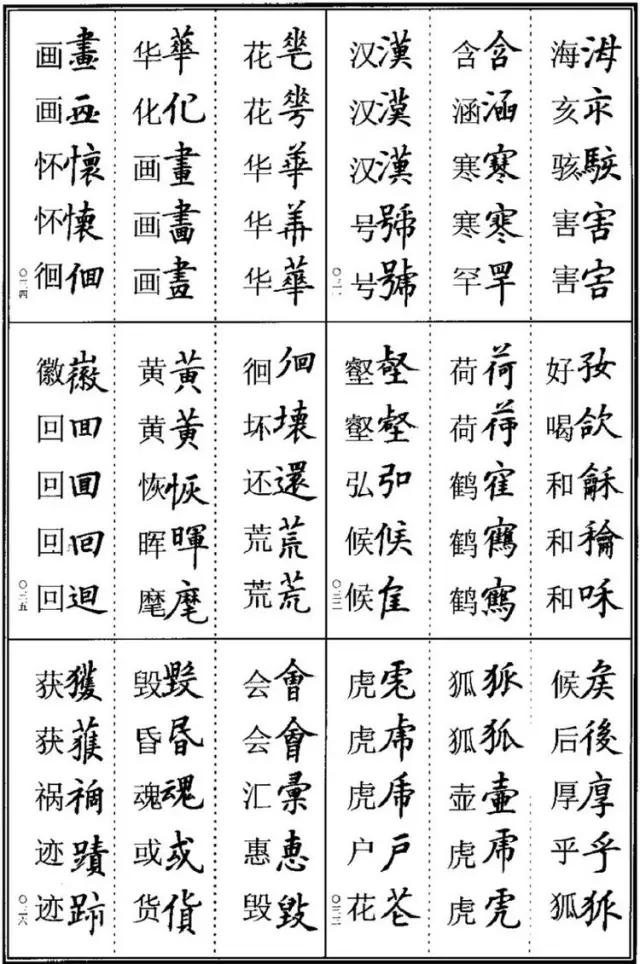 海海
亥亥
骇駭
害害
害害
含含
涵涵
寒寒
寒寒
罕罕
汉漢
汉漢
汉漢
号號
号號
〇三一
好㚥
喝欱
和龢
和龢
和咊
荷荷
荷荷
鹤隺
鹤鶴
鹤鶴
壑壑
壑壑
弘弘
候候
候
〇三二
候矦
后後
厚厚
乎乎
狐狐
狐狐
狐狐
壶壺
虎虎
虎虎
虎虎
虎虎
虎虎
户戶
花
〇三三
花
花
华華
华
华華
华華
化化
画畫
画畫
画畫
画畫
画
怀懷
怀懷
徊佪
〇三四
徊佪
坏壞
还還
荒荒
荒荒
黄黃
黄黄
恢恢
晖暉
麾麾
徽徽
回囬
回囬
回回
回迴
〇三五
会會
会會
汇彙
惠惠
毁毀
毁毇
昏昬
魂魂
或或
货貨
获獲
获
祸禍
迹蹟
迹跡
〇三六